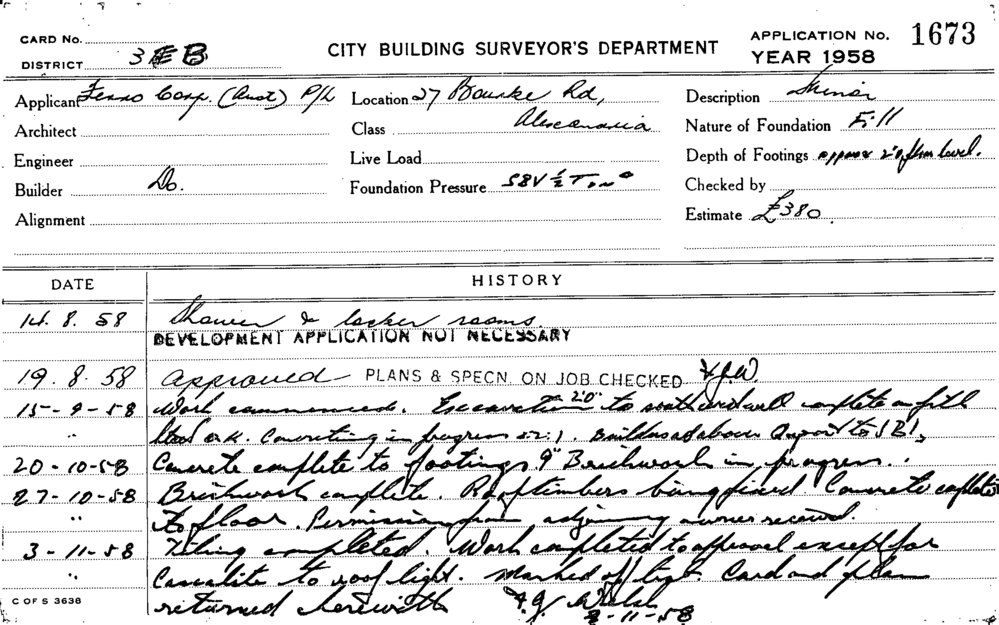 CARD No.
DISTRICT 3 B
CITY BUILDING SURVEYOR'S DEPARTMENT
APPLICATION No. 1673
YEAR 1958
Applicant Ferro Corp. (Aust) P/L
Location 27 Bourke Rd,
Description Minor
Architect
Class Alexandria
Nature of Foundation Fill
Engineer
Live Load
Depth of Footings approx 2'0" from level.
Builder Do.
Foundation Pressure SBV ½ Ton
Checked by
Alignment
Estimate £380.
DATE
HISTORY
14. 8. 58 Shower & locker rooms.
DEVELOPMENT APPLICATION NOT NECESSARY
19. 8. 58 Approved PLANS & SPECN. ON JOB CHECKED F.J.W.
15-9-58 Work commenced. Excavation 2'0" to complete on fill
" O.K. Concreting in progress Builders as above
20-10-58 Concrete complete to footings 9" Brickwork in progress.
27-10-58 Brickwork complete. Roof timbers being fixed. Concrete complete
" to floor. Permission from adjoining owner received.
3-11-58 Tiling completed. Work completed to approval except for
" to roof light. Marked off Card and plan
C OF S 3638
returned herewith F.J. Welsh
-11-58